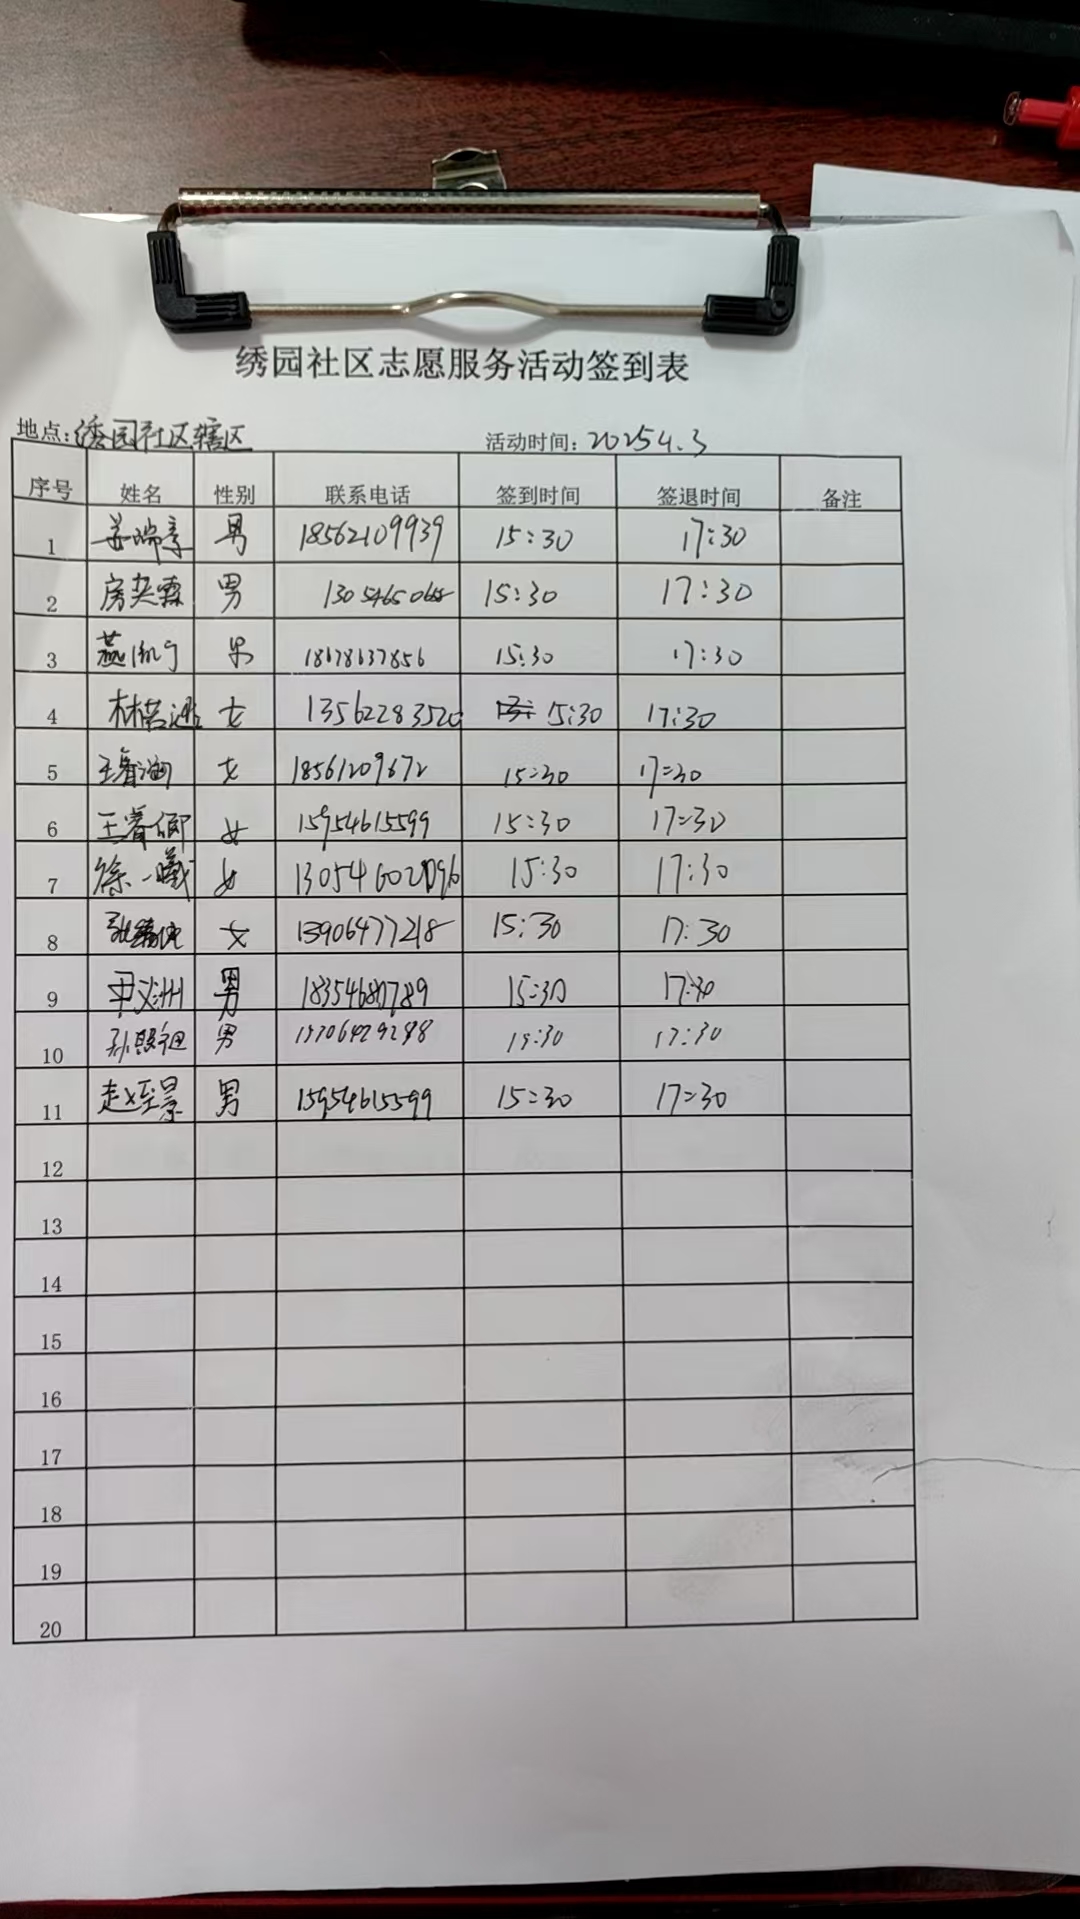 绣园社区志愿服务活动签到表
地点:绣园社区辖区 活动时间:2025 4.3
序号 姓名 性别 联系电话 签到时间 签退时间 备注
1 男 18562109939 15:30 17:30
2 男 15:30 17:30
3 男 18678637856 15:30 17:30
4 女 1356228352 15:30 17:30
5 女 18561209672 15:30 17:30
6 王睿 女 15954615599 15:30 17:30
7 徐一曦 女 15:30 17:30
8 女 13906477218 15:30 17:30
9 男 15:30 17:30
10 孙 男 15:30 17:30
11 赵至景 男 15954615599 15:30 17:30
12
13
14
15
16
17
18
19
20